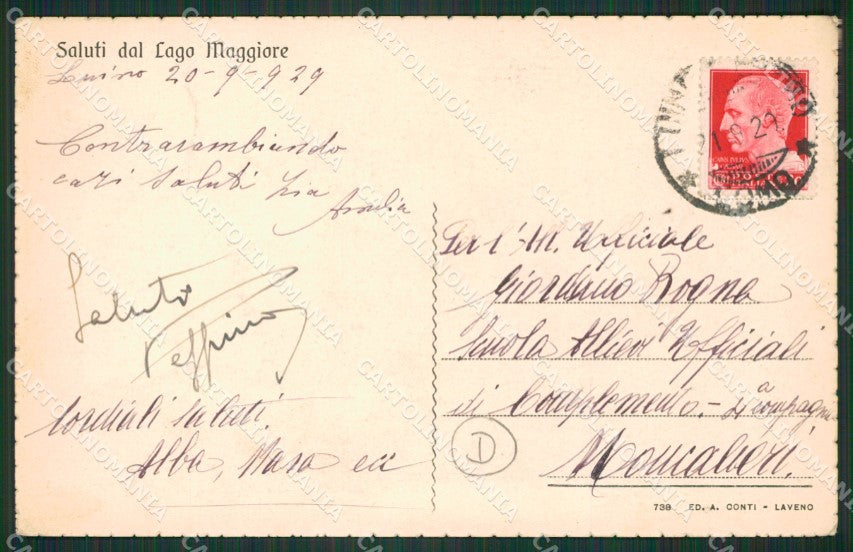 Saluti dal Lago Maggiore
Luino 20-9-929
Contracambiando
cari saluti zia
Amalia
Saluto
Peppino
Cordiali saluti.
Alba, Mara ecc
Per l'All. Ufficiale
Giordano Rogna
Scuola Allievi Ufficiali
di Complemento.- 4ª compagnia
Moncalieri.
D
738 ED. A. CONTI - LAVENO
CARTOLINOMANIA